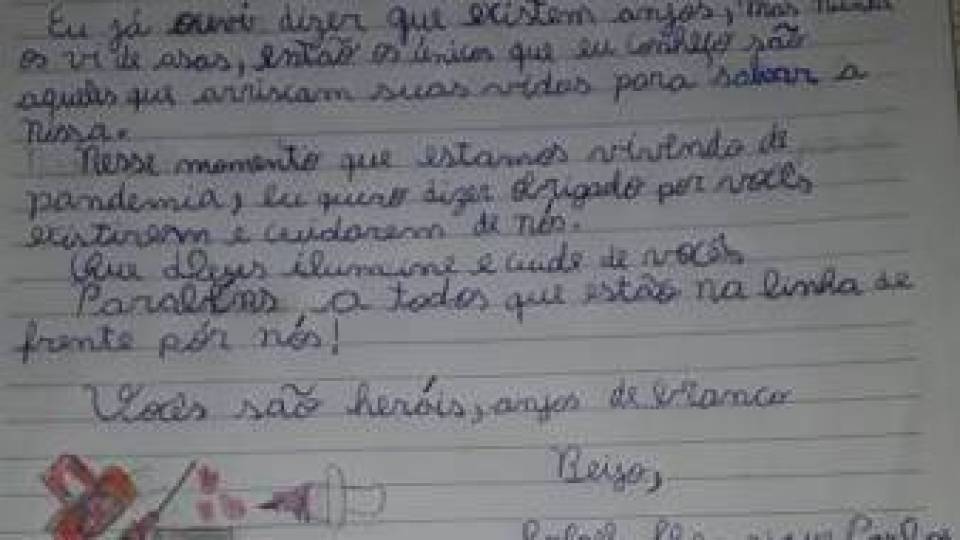 Eu já ouvi dizer que existem anjos, mas nunca
os vi de asas, então os únicos que eu conheço são
aqueles que arriscam suas vidas para salvar a
nossa.
Nesse momento que estamos vivendo de
pandemia, eu quero dizer obrigado por vocês
existirem e cuidarem de nós.
Que Deus ilumine e cuide de vocês
Parabéns a todos que estão na linha de
frente pór nós!
Vocês são heróis, anjos de branco
Beijo,
Carlos